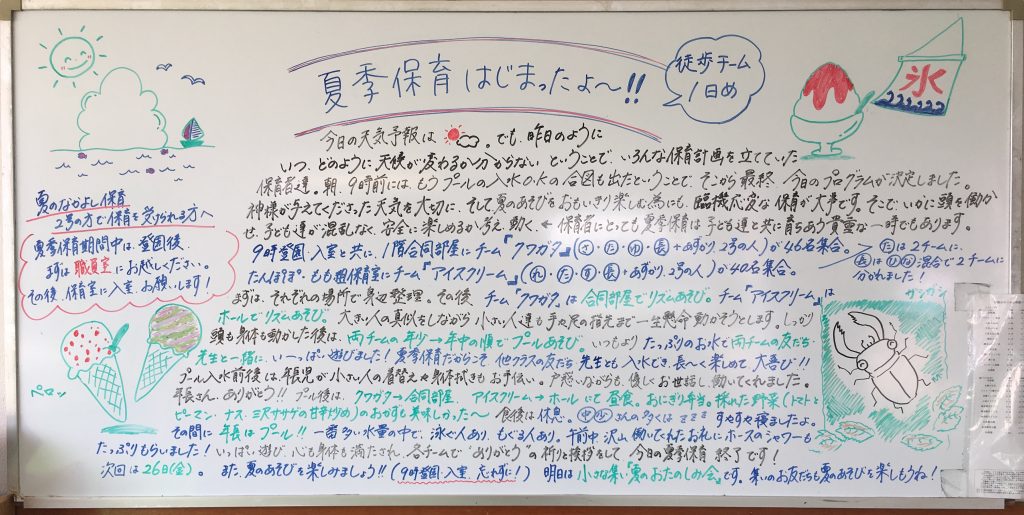 夏季保育はじまったよ〜!!
徒歩チーム
1日め
氷
今日の天気予報は 。でも、昨日のように
いつ、どのように、天候が変わるか分からないということで、いろんな保育計画を立てていた
保育者達。朝、9時前には、もうプールの入水O.Kの合図も出たということで、そこから最終、今日のプログラムが決定しました。
神様が与えてくださった天気を大切に、そして夏のあそびをおもいきり楽しむ為にも、臨機応変な保育が大事です。そこで、いかに頭を働か
せ、子ども達が混乱なく、安全に楽しめるか考え、動く、←保育者にとっても夏季保育は子ども達と共に育ちあう貴重な一時でもあります。
9時登園・入室と共に、1階合同部屋にチーム『クワガタ』(さ・た・ゆ・長+あずかり、2号の人)が46名集合。
たんぽぽ・もも組保育室にチーム『アイスクリーム』(れ・た・す・長+あずかり、2号の人)が40名集合。
たは2チームに、
長はひか混合で2チームに
分かれました!
まずは、それぞれの場所で身辺整理。その後、チーム『クワガタ』は合同部屋でリズムあそび。チーム『アイスクリーム』は
ホールでリズムあそび。大きい人の真似をしながら小さい人達も手や足の指先まで一生懸命動かそうとします。しっかり
頭も身体も動かした後は、両チームの年少→年中の順でプールあそび。いつもよりたっぷりのお水で両チームの友だち・
先生と一緒に、い〜っぱい遊びました!夏季保育だからこそ他クラスの友だち、先生とも入水でき、長〜く楽しめて大喜び!!
プール入水前後は、年長児が小さい人の着替えや身体拭きもお手伝い。戸惑いながらも、優しくお世話し、働いてくれました。
年長さん、ありがとう!!プール後は、クワガタ→合同部屋、アイスクリーム→ホールにて昼食。おにぎり弁当。採れた野菜(トマトと
ピーマン・ナス・三尺ササゲの甘辛炒め)のおかずも美味しかった〜 食後は休息。中少さんの多くはzzzすやすや寝ましたよ。
その間に年長はプール!!一番多い水量の中で、泳ぐ人あり、もぐる人あり。午前中、沢山働いてくれたお礼にホースのシャワーも
たっぷりもらいました!いっぱい遊び、心も身体も満たされ、各チームで“ありがとう”の祈りと挨拶をして、今日の夏季保育、終了です!
次回は26日(金)。また、夏のあそびを楽しみましょう!!(9時登園・入室、忘れずに!) 明日は小さな集い『夏のおたのしみ会』です。集いのお友だちも夏のあそびを楽しもうね!
夏のなかよし保育
2号の方で保育を受けられる方へ
夏季保育期間中は、登園後、
まずは職員室にお越しください。
その後、保育室に入室、お願いします!
ペロッ